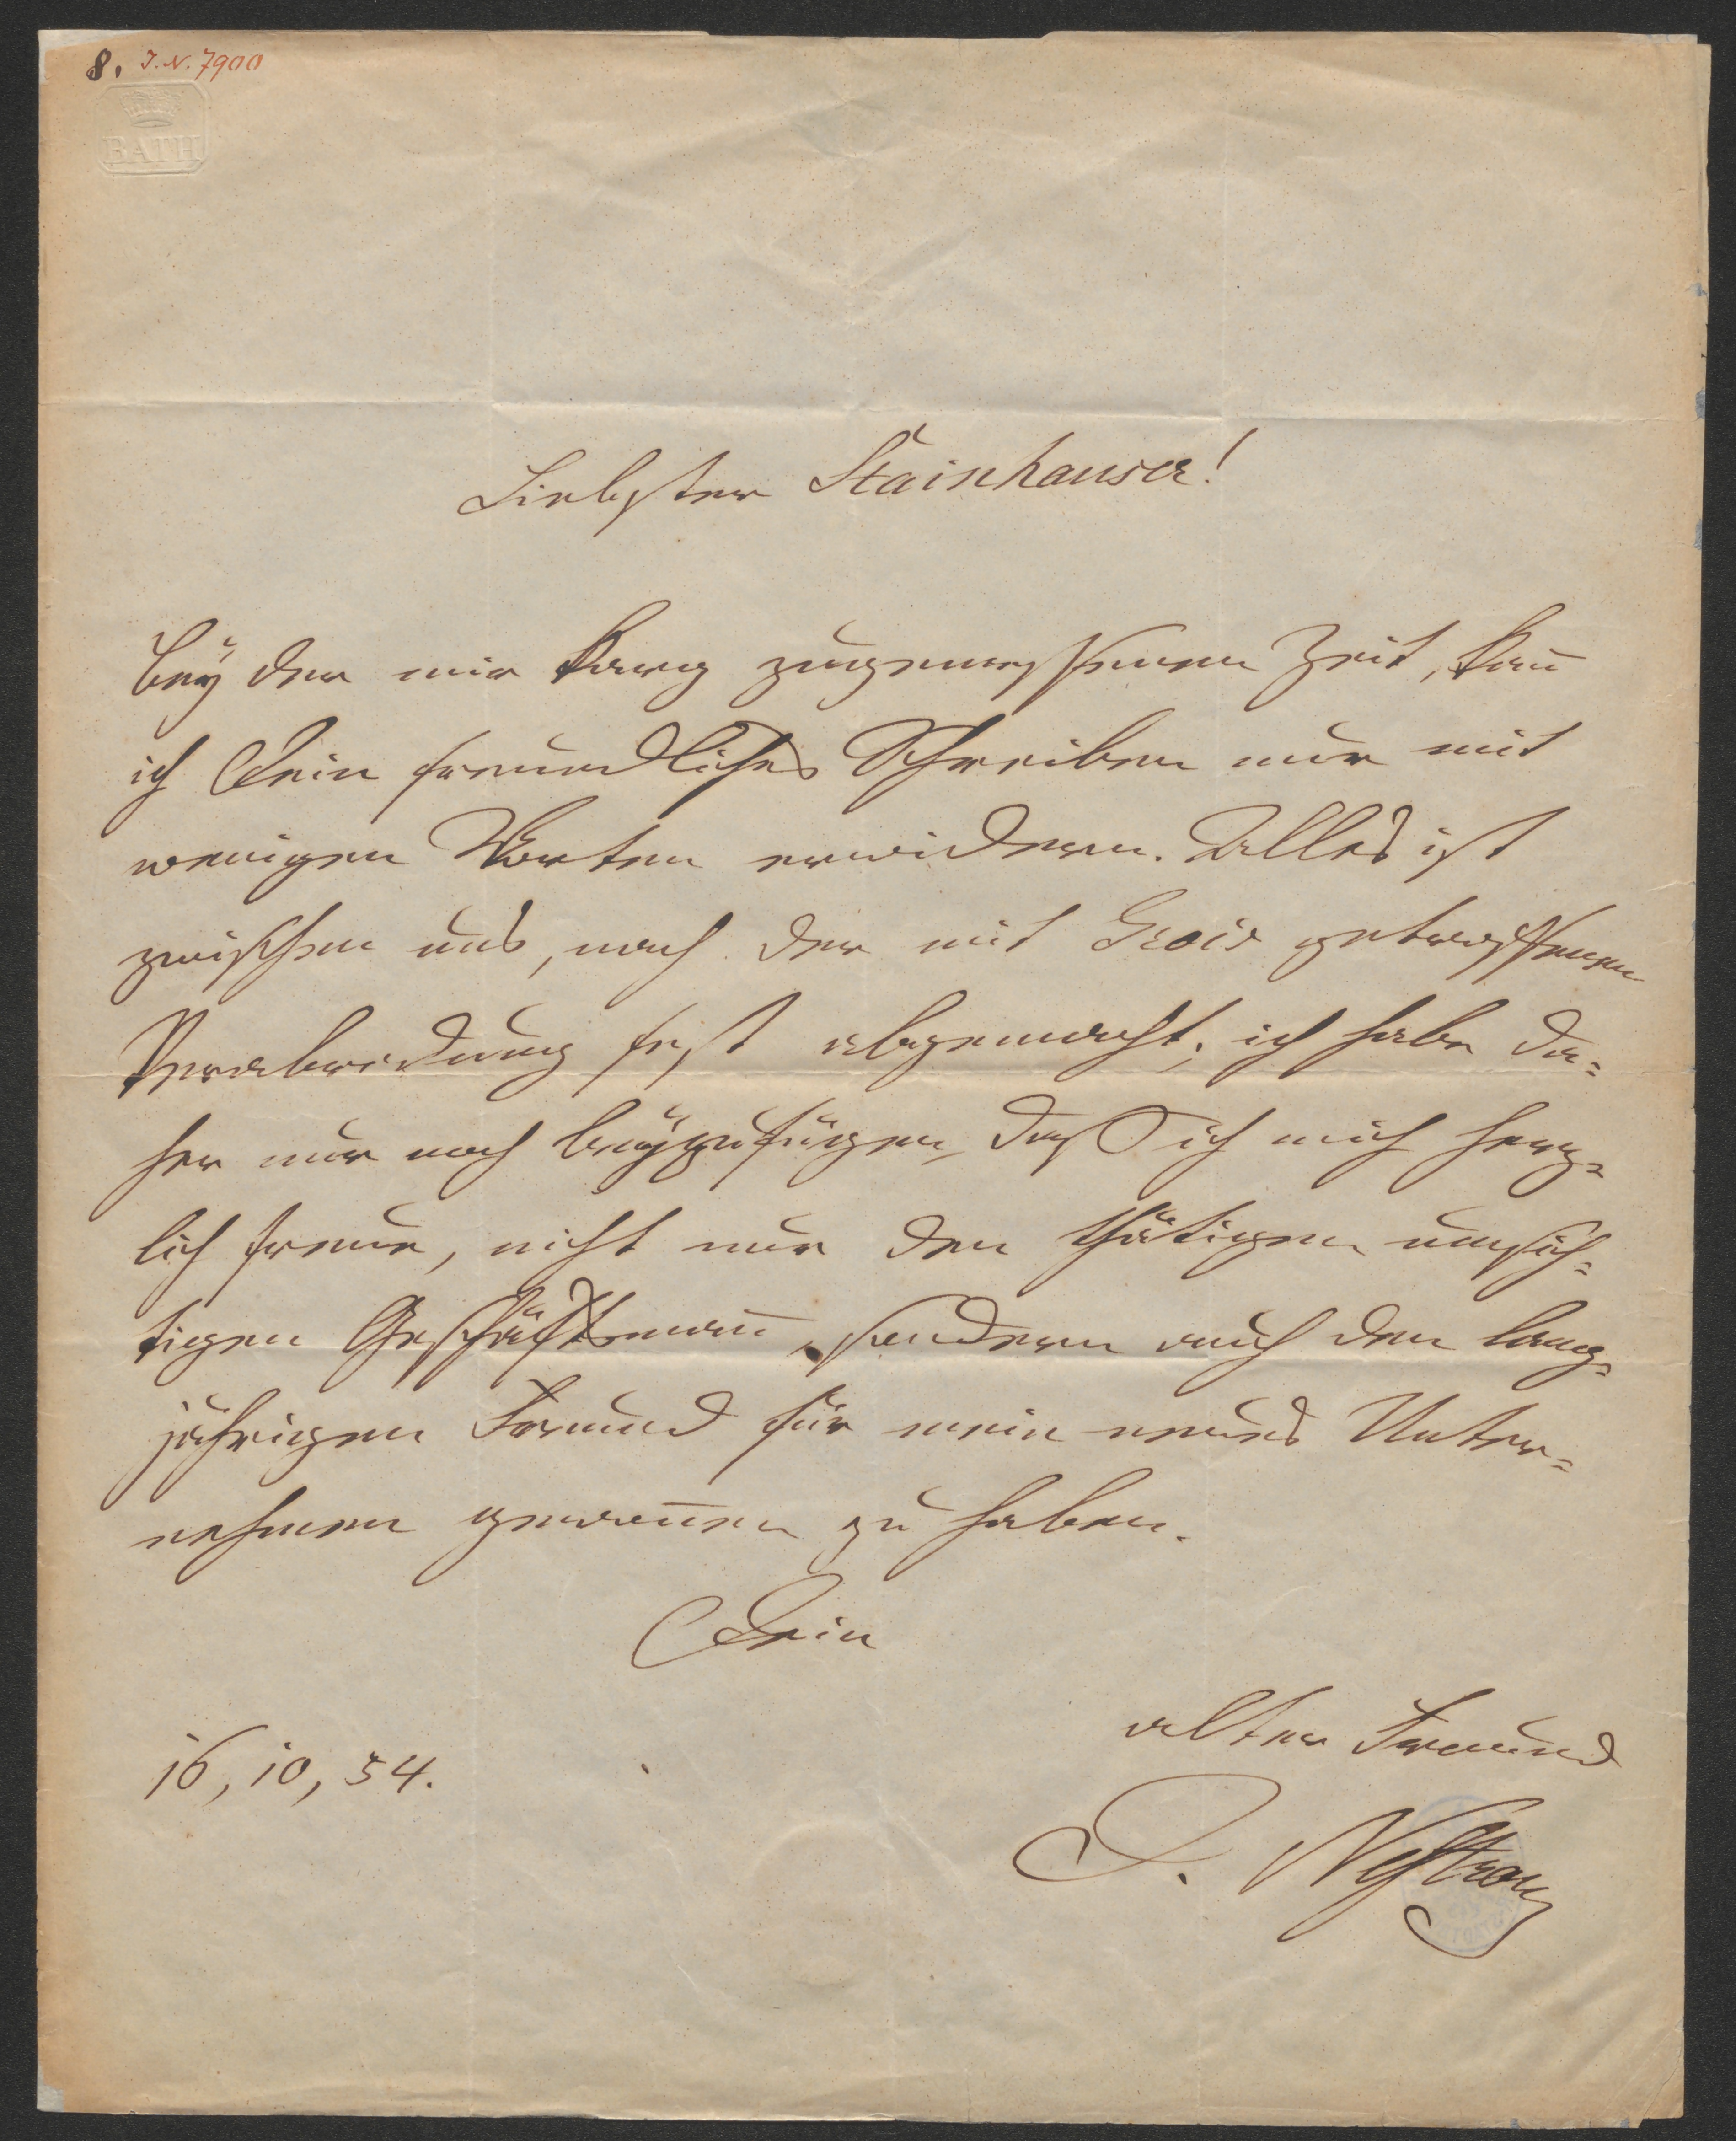 8. I.N. 7900
BATH
Liebster Stainhauser!
Bey der mir karg zugemessenen Zeit, kan̅
ich Dein freundliches Schreiben nur mit
wenigen Worten erwidern. Alles ist
zwischen uns, nach der mit Grois getroffenen
Verabredung fest abgemacht; ich habe da=
her nur noch beyzufügen, daß ich mich herz=
lich freue, nicht nur den thätigen umsich=
tigen Geschäftsman̅, sondern auch den lang=
jährigen Freund für mein neues Unter=
nehmen gewon̅en zu haben.
Dein
alter Freund
16, 10, 54.
J. Nestroy